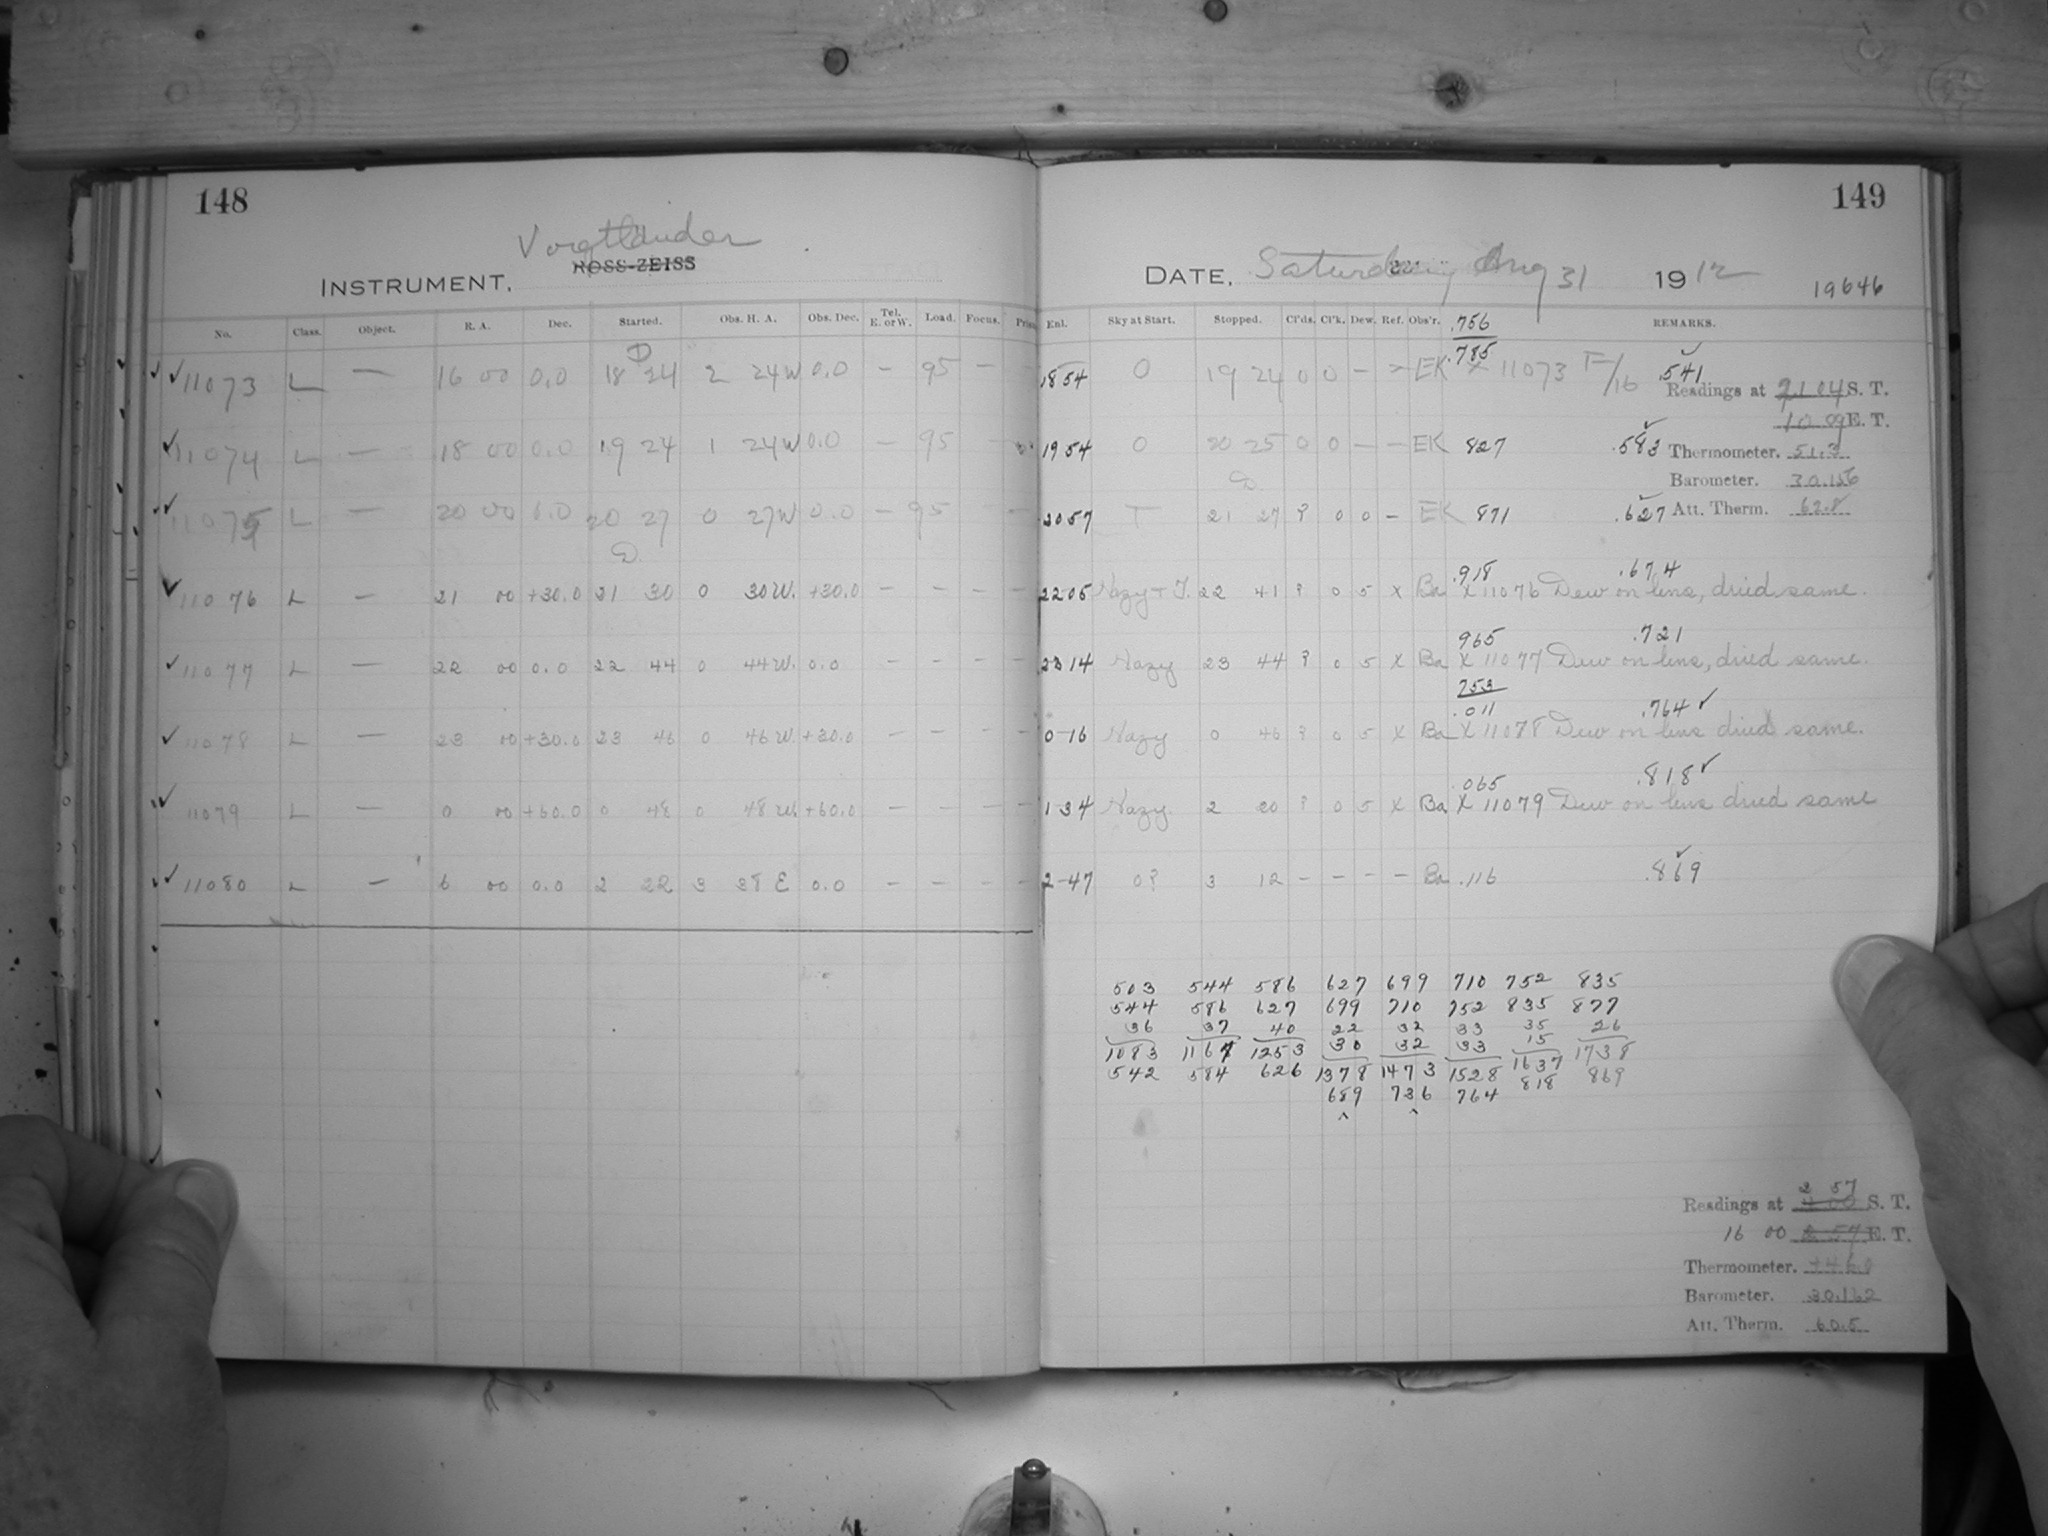 148
Voigtlander
ROSS-ZEISS
INSTRUMENT,
No. Class. Object. R. A. Dec. Started. Obs. H. A. Obs. Dec. Tel. E. or W. Load. Focus.
D
11073 L — 16 00 0.0 18 24 2 24W 0.0 — 95 —
11074 L — 18 00 0.0 19 24 1 24W 0.0 — 95 —
11075 L — 20 00 0.0 20 27 0 27W 0.0 — 95 —
D
11076 L — 21 00 +30.0 21 30 0 30W. +30.0 — — — —
11077 L — 22 00 0.0 22 44 0 44W. 0.0 — — — —
11078 L — 23 00 +30.0 23 46 0 46W. +30.0 — — — —
11079 L — 0 00 +60.0 0 48 0 48W. +60.0 — — — —
11080 L — 6 00 0.0 2 22 3 38 E 0.0 — — — —
149
DATE, Saturday Aug 31 1912 19646
Enl. Sky at Start. Stopped. Cl'ds. Cl'k. Dew. Ref. Obs'r. REMARKS.
.756
.785
1854 O 19 24 0 0 — — EK X 11073 F/16 .541
Readings at 21 04 S. T.
10.09 E. T.
1954 O 20 25 0 0 — — EK 827 .583
Thermometer. 51.3
Barometer. 30.156
D
2057 T 21 27 ? 0 0 — EK 871 .627
Att. Therm. 62.8
.918 .674
2205 Hazy + T. 22 41 ? 0 5 X Ba X 11076 Dew on lens, dried same.
965 .721
2314 Hazy 23 44 ? 0 5 X Ba X 11077 Dew on lens, dried same.
753
.011 .764
0-16 Hazy 0 46 ? 0 5 X Ba X 11078 Dew on lens dried same.
.065 .818
1 34 Hazy. 2 20 ? 0 5 X Ba X 11079 Dew on lens dried same
2-47 0? 3 12 — — — — Ba .116 .869
503 544 586 627 699 710 752 835
544 586 627 699 710 752 835 877
36 37 40 22 32 33 35 26
30 32 33 15
1083 1167 1253 1378 1473 1528 1637 1738
542 584 626 689 736 764 818 869
2 57
Readings at S. T.
16 00 2 57 E. T.
Thermometer. +46.0
Barometer. 30.162
Att. Therm. 60.5